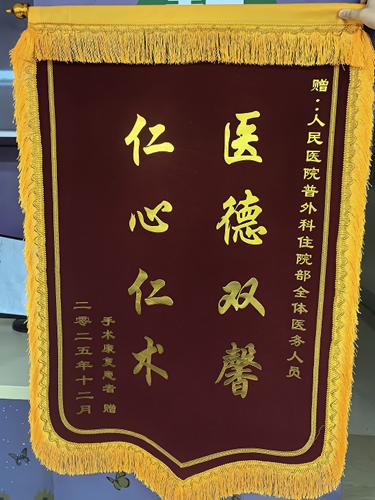 赠：人民医院普外科住院部全体医务人员
医德双馨
仁心仁术
手术康复患者 赠
二零二五年十二月